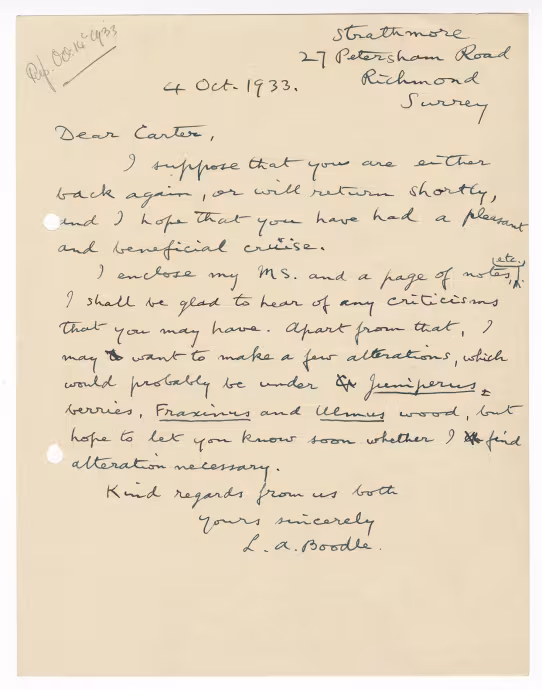 Rep. Oct. 14th 1933
Strathmore
27 Petersham Road
Richmond
Surrey
4 Oct. 1933.
Dear Carter,
I suppose that you are either
back again, or will return shortly,
and I hope that you have had a pleasant
and beneficial cruise.
I enclose my MS. and a page of notes, etc.
I shall be glad to hear of any criticisms
that you may have. Apart from that, I
may want to make a few alterations, which
would probably be under Juniperus
berries, Fraxinus and Ulmus wood, but
hope to let you know soon whether I find
alteration necessary.
Kind regards from us both
Yours sincerely
L. A. Boodle.